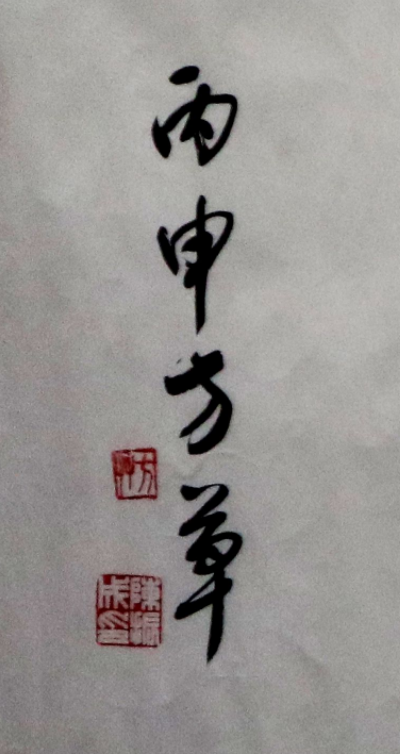 丙申方草